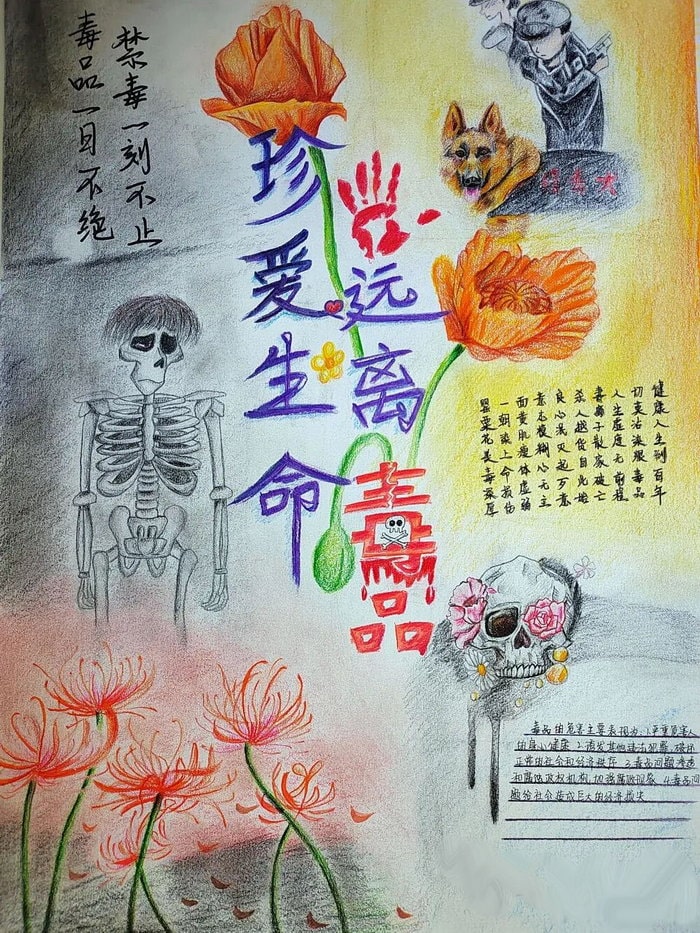 毒品一日不绝
禁毒一刻不止
珍爱生命
远离毒品
罂粟花美毒
一朝染上命损伤
面黄肌瘦体虚弱
意志模糊心无主
良心泯灭起歹意
杀人越货目光
离子散家破亡
人生虚度无前程
切莫沾服毒品
健康人生到百年
毒品的危害主要表现为:1.严重危害人
的身心健康 2.诱发其他违法犯罪,破坏
正常的社会和经济秩序 3.毒品问题渗透
和腐蚀政权机构,加强腐败现象 4.毒品问
题给社会造成巨大的经济损失